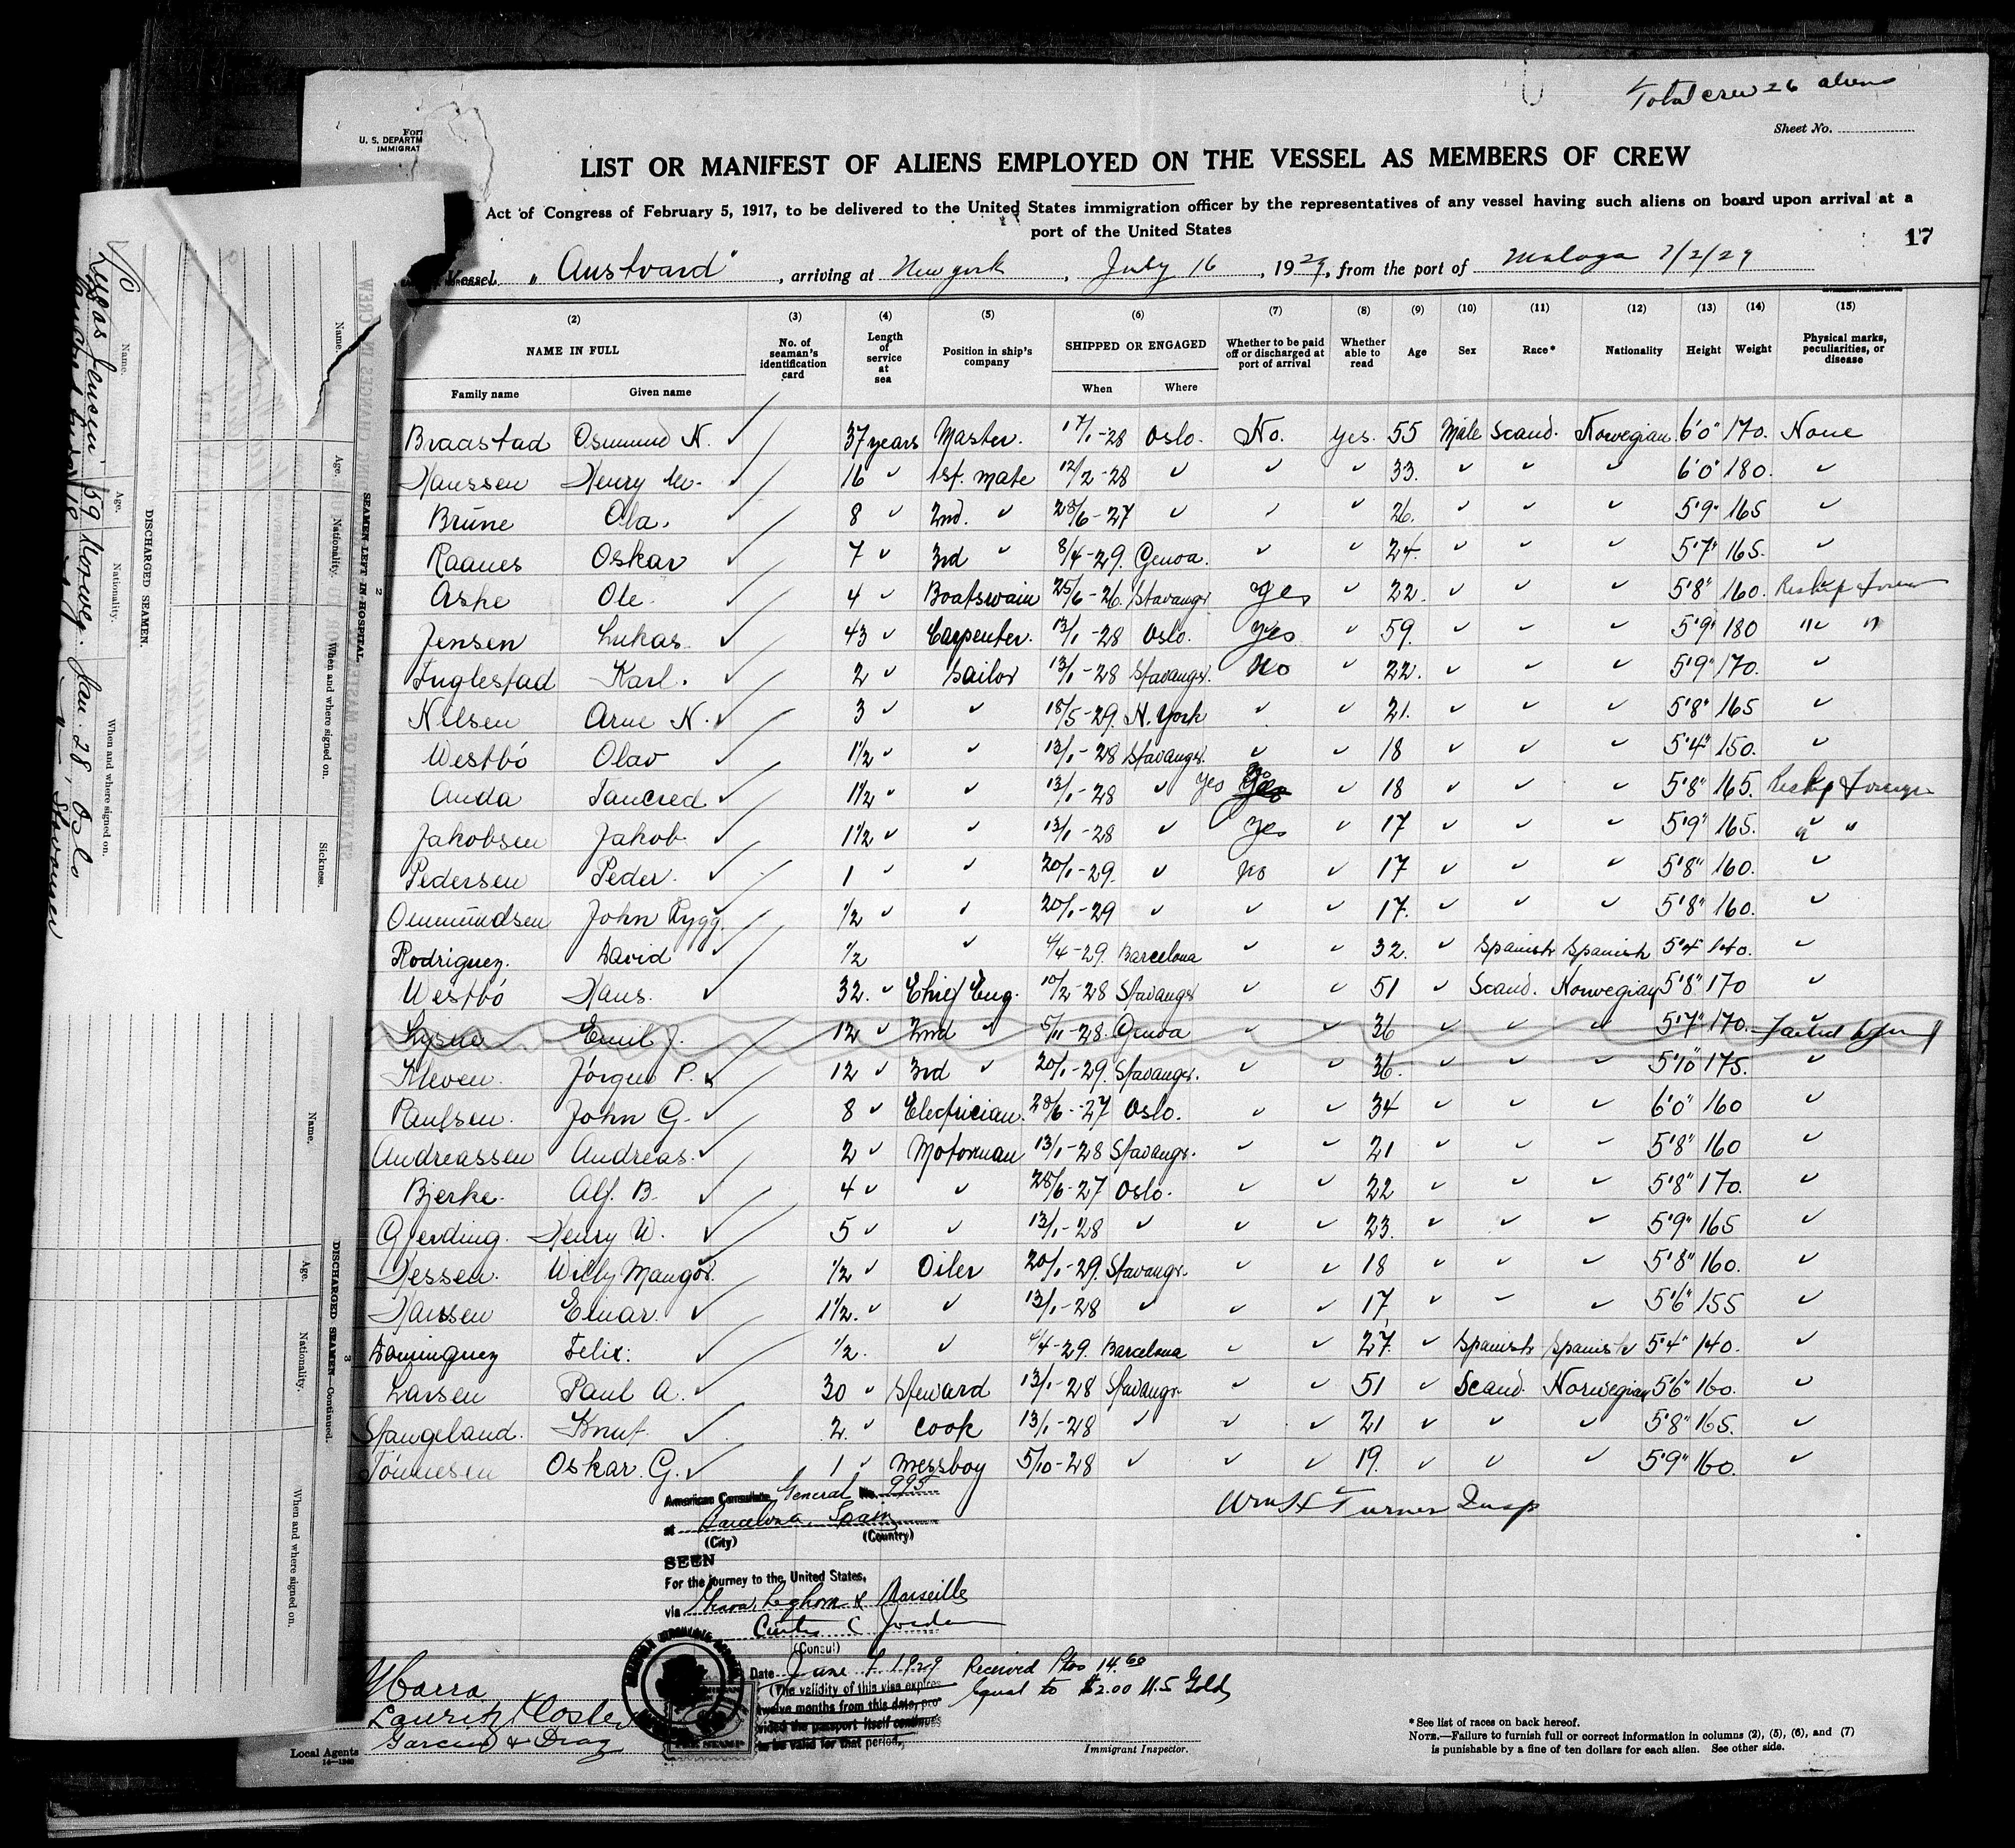 Total crew 26 aliens
Sheet No.
U. S. DEPARTM
IMMIGRAT
LIST OR MANIFEST OF ALIENS EMPLOYED ON THE VESSEL AS MEMBERS OF CREW
Act of Congress of February 5, 1917, to be delivered to the United States immigration officer by the representatives of any vessel having such aliens on board upon arrival at a
port of the United States
17
Vessel "Austvard", arriving at New York, July 16, 1929, from the port of Malaga 7/2/29
(2) (3) (4) (5) (6) (7) (8) (9) (10) (11) (12) (13) (14) (15)
NAME IN FULL No. of seaman's identification card Length of service at sea Position in ship's company SHIPPED OR ENGAGED Whether to be paid off or discharged at port of arrival Whether able to read Age Sex Race* Nationality Height Weight Physical marks, peculiarities, or disease
Family name Given name When Where
Braastad Osmund N. 37 years Master. 17/1-28 Oslo. No. Yes. 55 Male Scand. Norwegian 6'0" 170. None
Hanssen Henry 16 1st. mate 12/2-28 33. 6'0" 180.
Brune Ola. 8 2nd. 28/6-27 26. 5'9" 165
Raanes Oskar 7 3rd 8/4-29. Genoa. 24. 5'7" 165.
Aske Ole. 4 Boatswain 25/6-26. Stavangr Yes 22. 5'8" 160. Reship foreign
Jensen Lukas. 43 Carpenter. 13/1-28 Oslo. Yes 59. 5'9" 180 " "
Inglestad Karl. 2 Sailor 13/1-28 Stavanger. No 22. 5'9" 170.
Nilsen Arne N. 3 18/5-29. N. York 21. 5'8" 165
Westbó Olav 1 1/2 13/1-28 Stavanger. 18 5'4" 150.
Anda Tancred 1 1/2 13/1-28 Yes 18 5'8" 165. Reship foreign
Jakobsen Jakob. 1 1/2 13/1-28 Yes 17 5'9" 165. " "
Pedersen Peder. 1 20/1-29. No 17 5'8" 160.
Ommundsen John Rygg. 1/2 20/1-29 17. 5'8" 160.
Rodriguez. David 1/2 4/4-29. Barcelona 32. Spanish Spanish 5'4" 140.
Westbó Hans. 32. Chief Eng. 10/2-28 Stavangr 51 Scand. Norwegian 5'8" 170
Lysne Emil J. 12 2nd " 5/11-28. Genoa 36 5'7" 170. Failed to join
Kleven. Jórgen P. 12 3rd 20/1-29. Stavanger. 36. 5'10" 175.
Paulsen. John G. 8 Electrician. 28/6-27 Oslo. 34 6'0" 160
Andreassen Andreas. 2 Motorman 13/1-28 Stavangr. 21 5'8" 160
Bjerke. Alf. B. 4 28/6-27 Oslo. 22 5'8" 170.
Gjerding. Henry W. 5 13/1-28 23. 5'9" 165
Jessen. Willy Mangor. 1/2 Oiler 20/1-29. Stavangr. 18 5'8" 160.
Hanssen Einar. 1 1/2. 13/1-28 17 5'6" 155
Dominguez Felix. 1/2. 4/4-29. Barcelona 27. Spanish Spanish 5'4" 140.
Larsen Paul A. 30 Steward 13/1-28 Stavangr. 51 Scand. Norwegian 5'6" 160.
Stangeland. Knut. 2. Cook 13/1-28 21 5'8" 165.
Tónnesen Oskar. G. 1 Messboy 5/10-28 19. 5'9" 160.
American Consulate General No. 995
at Barcelona, Spain
(City) (Country)
Wm H Turner Insp
SEEN
For the journey to the United States,
via Genoa, Leghorn & Marseille
Curtis C Jordan
(Consul)
Date June 7 1929 Received Ptas 14.60
Equal to $2.00 U.S Gold
(The validity of this visa expires
twelve months from this date, pro-
vided the passport itself continues
to be valid for that period.
Ybarra
Lauritz Kloster
Garcia & Diaz
Local Agents
14—1240
Immigrant Inspector.
*See list of races on back hereof.
NOTE.—Failure to furnish full or correct information in columns (2), (5), (6), and (7)
is punishable by a fine of ten dollars for each alien. See other side.
DISCHARGED SEAMEN.
Name. Age. Nationality. When and where signed on.
Lukas Jensen 59 Norweg. Jan. 28, Oslo
Stavanger
SEAMEN LEFT IN HOSPITAL
Name. Age. Nationality. When and where signed on. Sickness.
2
DISCHARGED SEAMEN—Continued.
Name. Age. Nationality. When and where signed on.
3